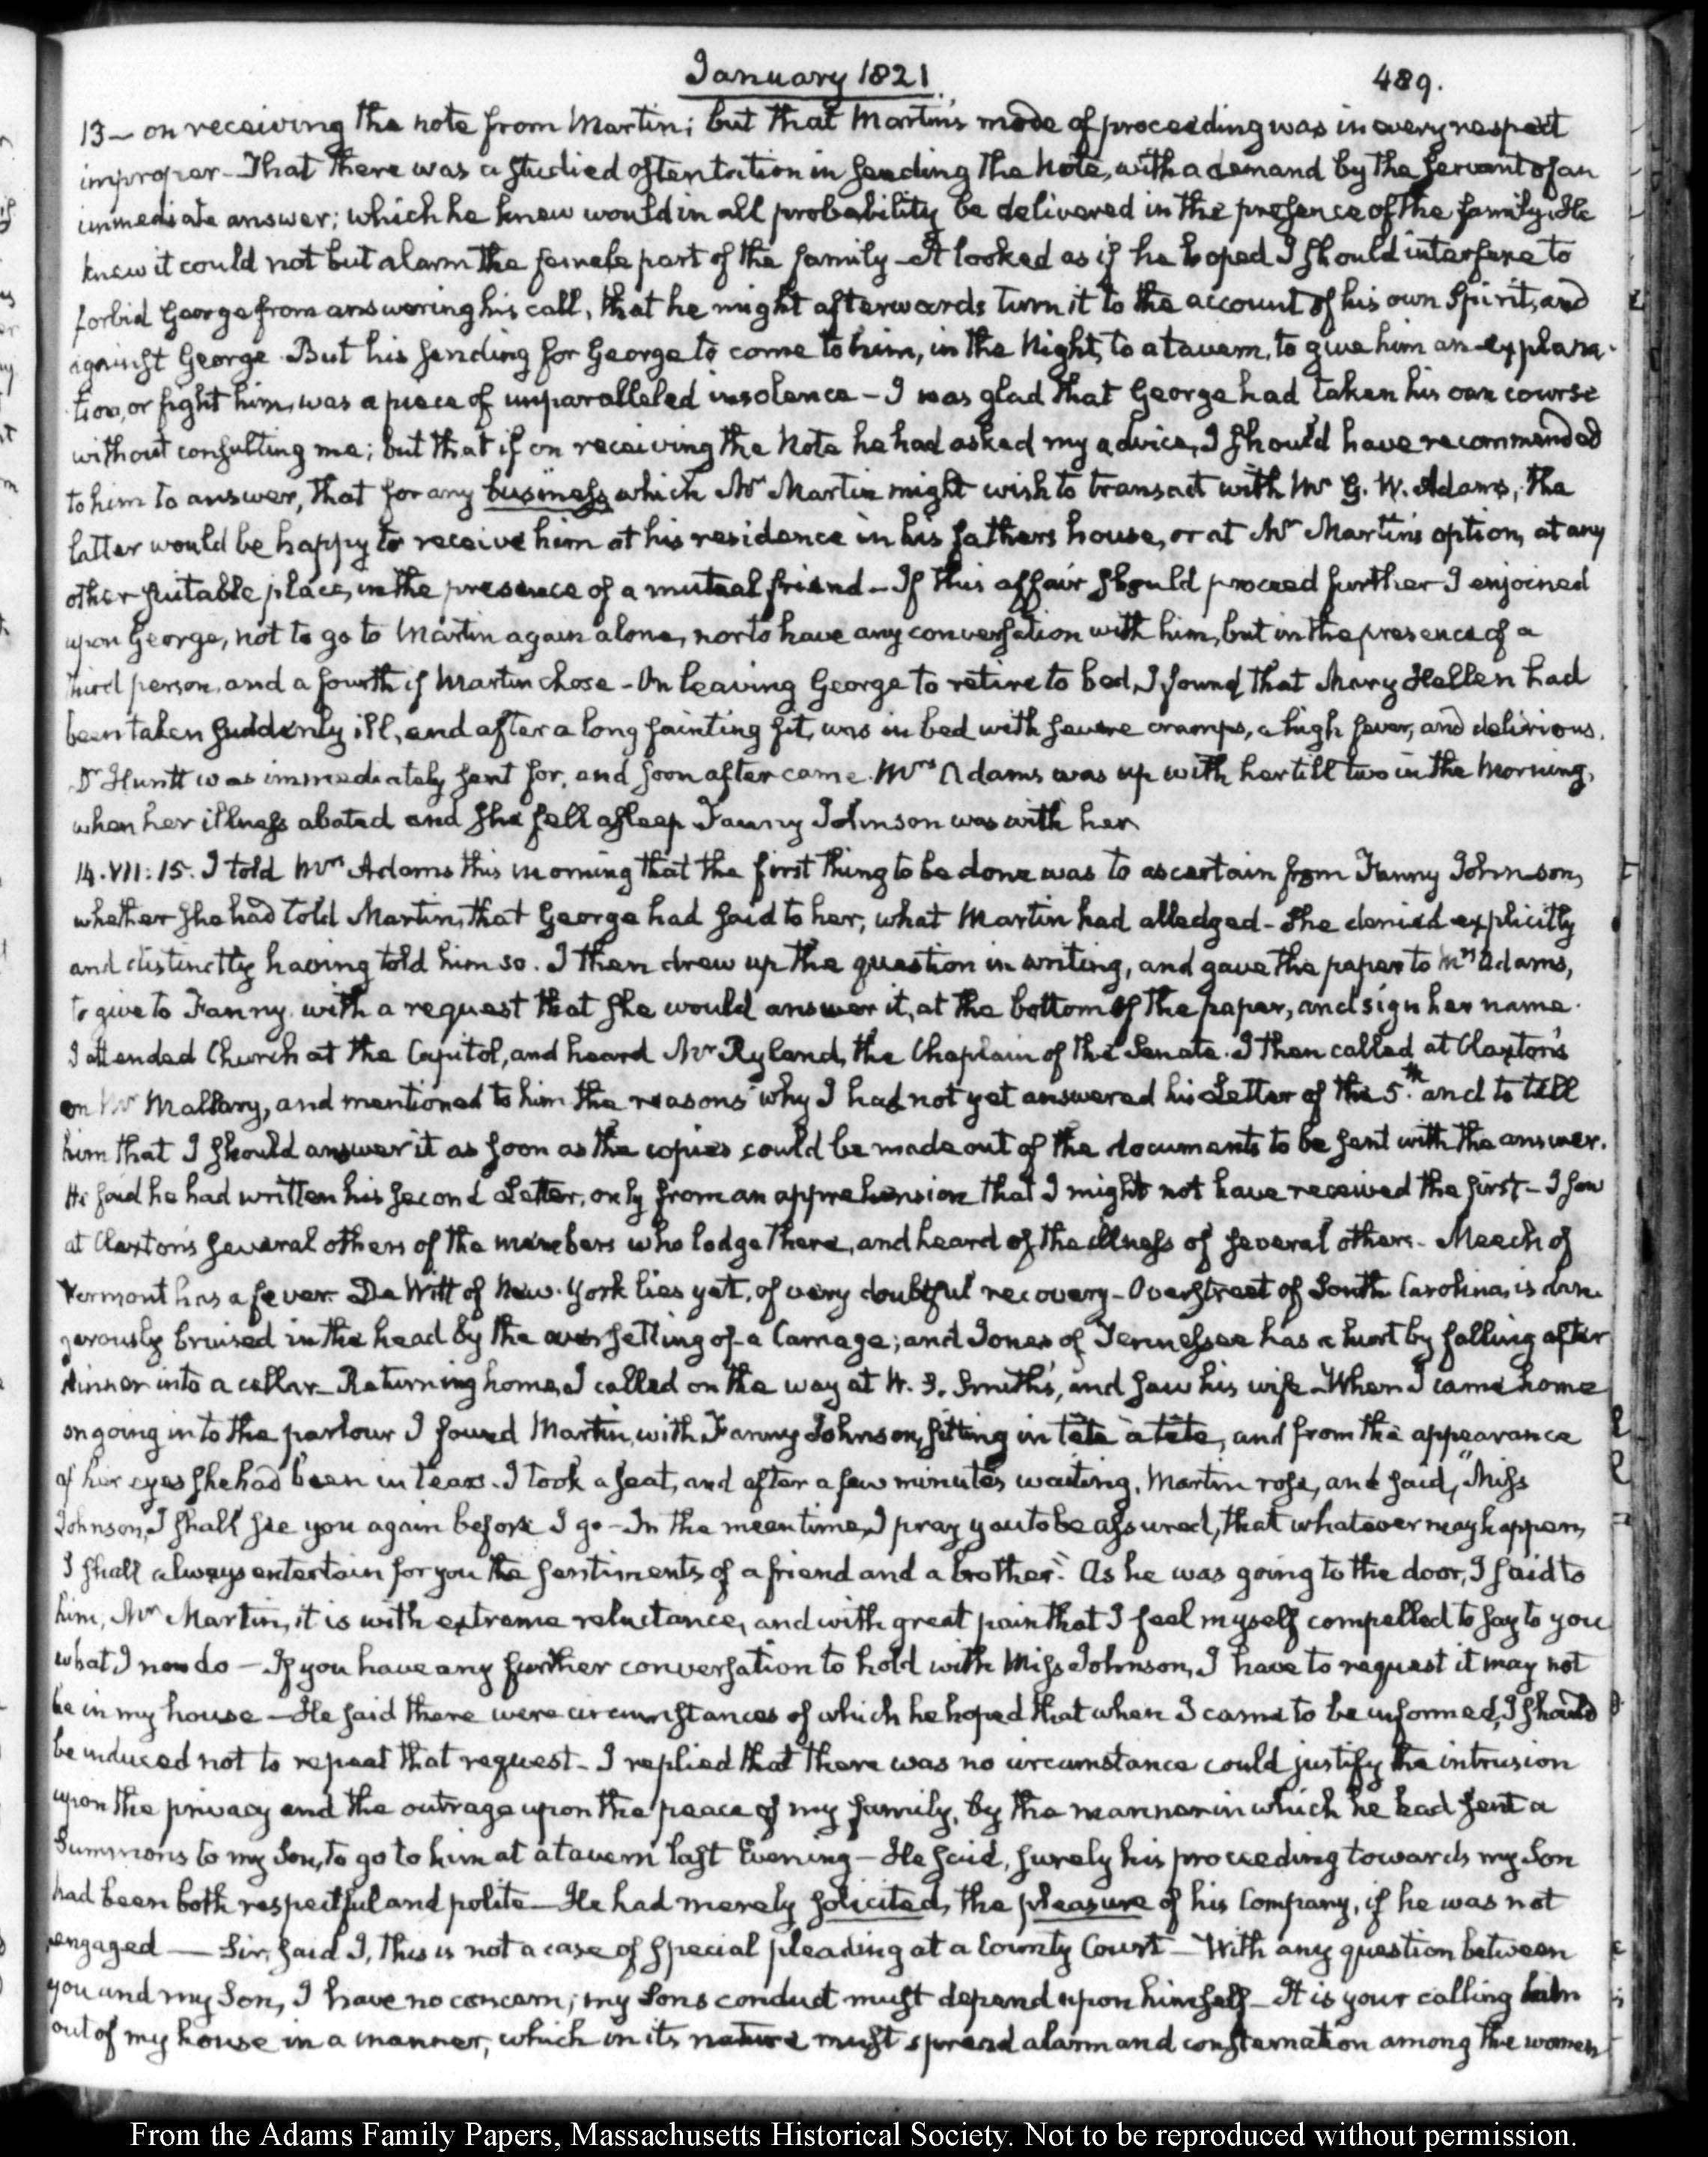 January 1821.
489.
13 — on receiving the note from Martin; but that Martin's mode of proceeding was in every respect
improper — That there was a studied ostentation in sending the Note, with a demand by the servant of an
immediate answer; which he knew would in all probability be delivered in the presence of the family. He
knew it could not but alarm the female part of the family — It looked as if he hoped I should interfere to
forbid George from answering his call, that he might afterwards turn it to the account of his own Spirit, and
against George. But his sending for George to come to him, in the Night, to a tavern, to give him an explana-
tion, or fight him, was a piece of unparalleled insolence — I was glad that George had taken his own course
without consulting me; but that if on receiving the Note he had asked my advice, I should have recommended
to him to answer, that for any business which Mr Martin might wish to transact with Mr G. W. Adams, the
latter would be happy to receive him at his residence in his fathers house, or at Mr Martin's option, at any
other suitable place, in the presence of a mutual friend — If this affair should proceed further I enjoined
upon George, not to go to Martin again alone, nor to have any conversation with him, but in the presence of a
third person, and a fourth if Martin chose — On leaving George to retire to bed, I found that Mary Hellen had
been taken suddenly ill, and after a long fainting fit, was in bed with severe cramps, a high fever, and delirious.
Dr Huntt was immediately sent for, and soon after came. Mrs Adams was up with her till two in the Morning,
when her illness abated and she fell asleep Fanny Johnson was with her
14. VII: 15. I told Mrs Adams this morning that the first thing to be done was to ascertain from Fanny Johnson,
whether she had told Martin, that George had said to her, what Martin had alledged — She denied explicitly
and distinctly having told him so. I then drew up the question in writing, and gave the paper to Mrs Adams,
to give to Fanny with a request that she would answer it, at the bottom of the paper, and sign her name.
I attended Church at the Capitol, and heard Mr Ryland, the Chaplain of the Senate. I then called at Claxton's
on Mr Mallary, and mentioned to him the reasons why I had not yet answered his Letter of the 5.th and to tell
him that I should answer it as soon as the copies could be made out of the documents to be sent with the answer.
He said he had written his second Letter, only from an apprehension that I might not have received the first — I saw
at Claxton's several others of the members who lodge there, and heard of the illness of several others — Meech of
Vermont has a fever. De Witt of New-York lies yet, of very doubtful recovery — Overstreet of South Carolina, is dan-
gerously bruised in the head by the oversetting of a Carriage; and Jones of Tennessee has a hurt by falling after
dinner into a cellar — Returning home, I called on the way at W. S. Smith's, and saw his wife. When I came home
on going into the parlour I found Martin, with Fanny Johnson, sitting in tête à tête, and from the appearance
of her eyes she had been in tears. I took a seat, and after a few minutes waiting, Martin rose, and said, "Miss
Johnson, I shall see you again before I go — In the mean time, I pray you to be assured, that whatever may happen,
I shall always entertain for you the sentiments of a friend and a brother." As he was going to the door, I said to
him, Mr Martin, it is with extreme reluctance, and with great pain that I feel myself compelled to say to you
what I now do — If you have any further conversation to hold with Miss Johnson, I have to request it may not
be in my house — He said there were circumstances of which he hoped that when I came to be informed, I should
be induced not to repeat that request — I replied that there was no circumstance could justify the intrusion
upon the privacy and the outrage upon the peace of my family, by the manner in which he had sent a
Summons to my Son, to go to him at a tavern last Evening — He said, surely his proceeding towards my Son
had been both respectful and polite — He had merely solicited, the pleasure of his Company, if he was not
engaged — Sir, said I, this is not a case of special pleading at a County Court — With any question between
you and my Son, I have no concern; my Sons conduct must depend upon himself — It is your calling him
out of my house in a manner, which in its nature must spread alarm and consternation among the women
From the Adams Family Papers, Massachusetts Historical Society. Not to be reproduced without permission.